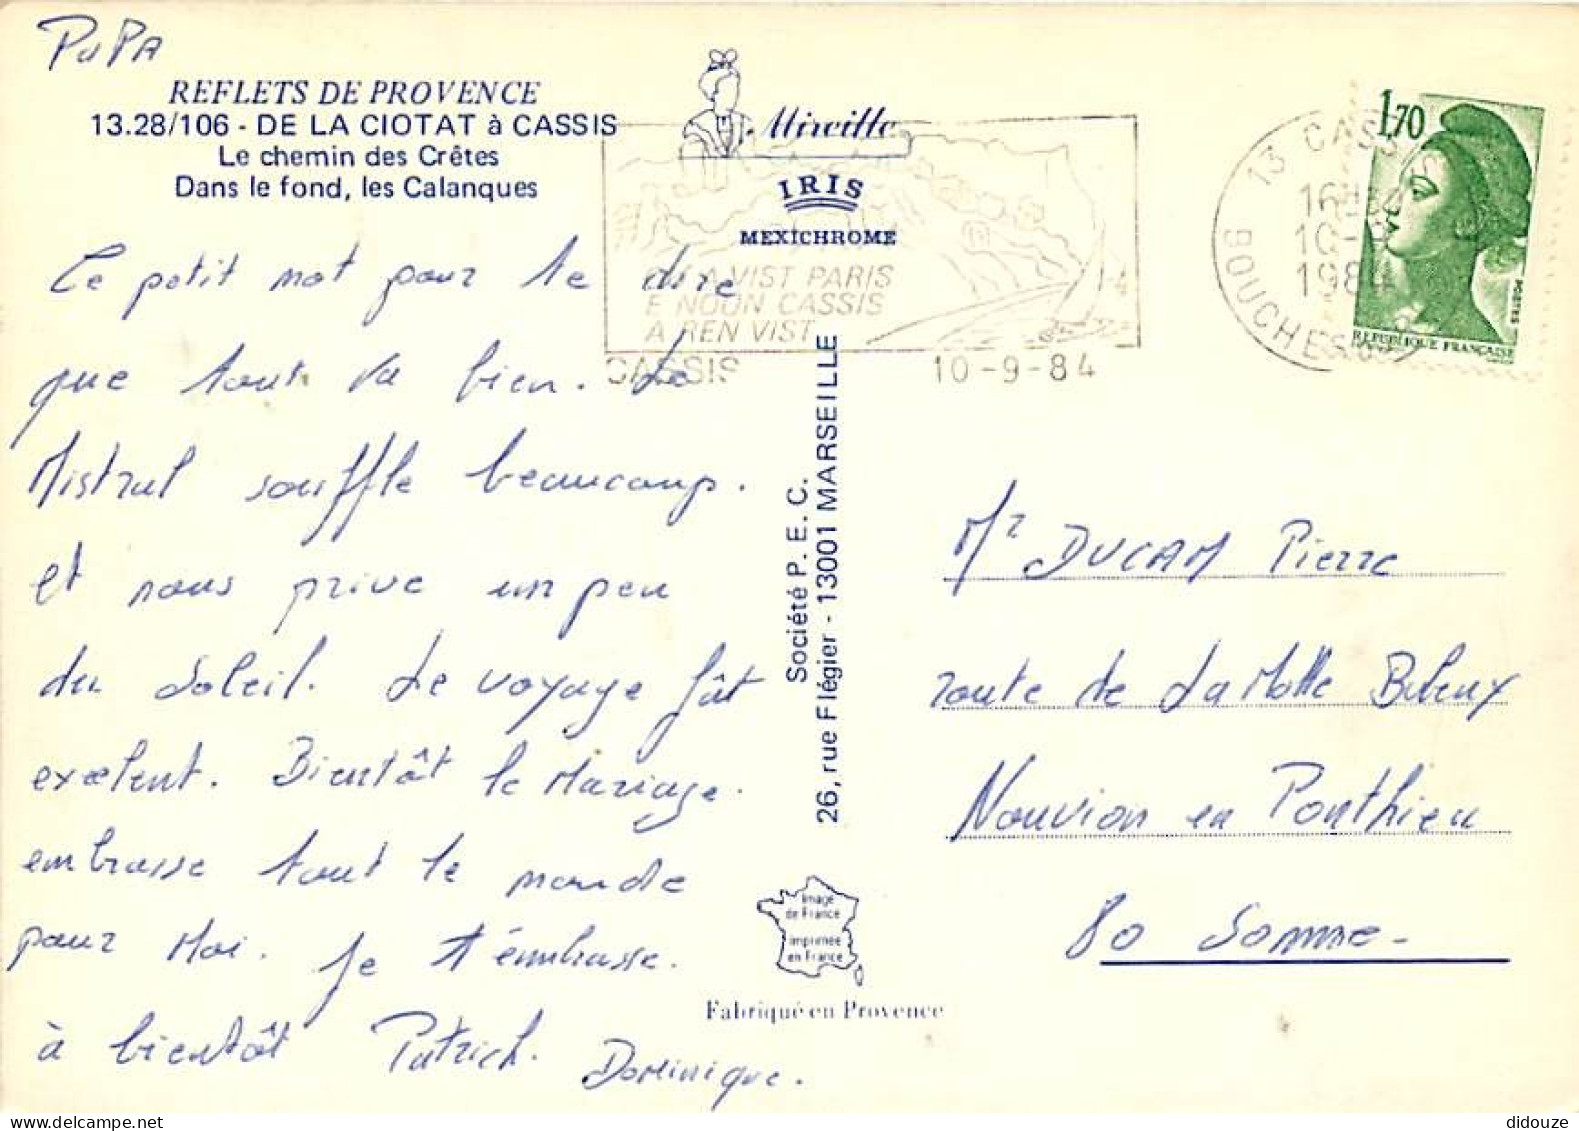 PuPA
REFLETS DE PROVENCE
13.28/106 - DE LA CIOTAT à CASSIS
Le chemin des Crêtes
Dans le fond, les Calanques
Ce petit mot pour te dire
que tout va bien. Le
Mistral souffle beaucoup.
et nous prive un peu
du soleil. Le voyage fût
excelent. Bientôt le Mariage.
embrasse tout le monde
pour Moi. Je t'émbrasse.
à bientôt Patrick. Dominique.
Mireille
IRIS
MEXICHROME
QU A VIST PARIS
E NOUN CASSIS
A REN VIST
CASSIS
10-9-84
13 CASSIS
16H
10-9
1984
BOUCHES
1,70
POSTES
REPUBLIQUE FRANÇAISE
Société P. E. C.
26, rue Flégier - 13001 MARSEILLE
Mr DUCAM Pierre
route de La Motte Buleux
Nouvion en Ponthieu
80 Somme-
Image
de France
imprimée
en France
Fabriqué en Provence
didouze